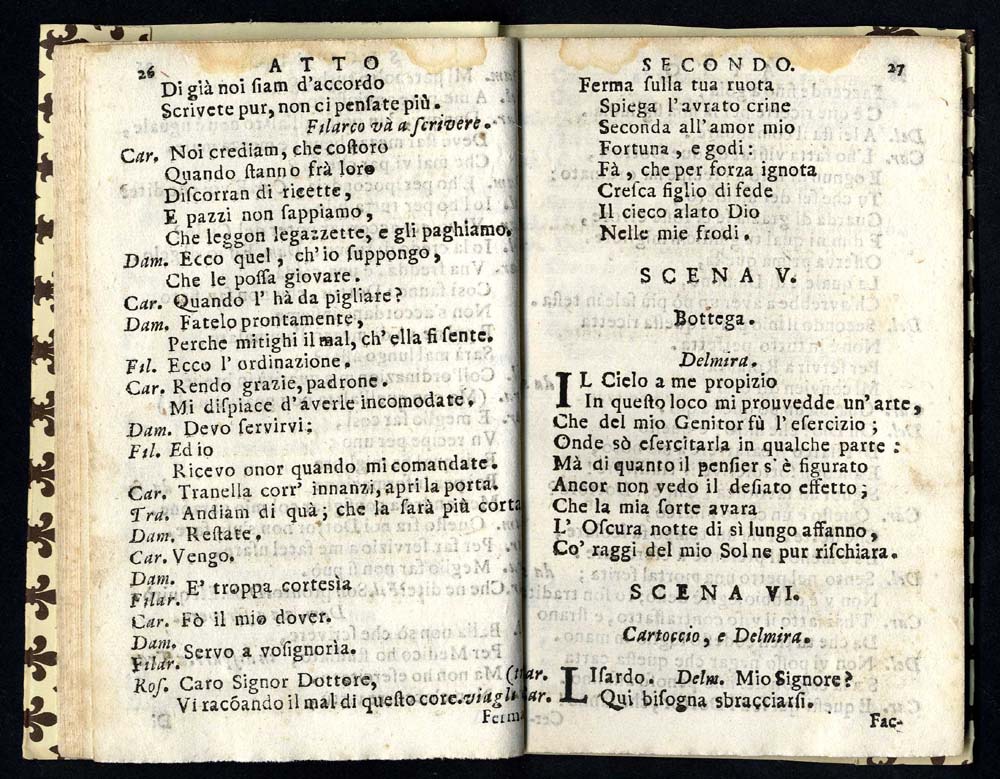 26 ATTO
Di già noi siam d'accordo
Scrivete pur, non ci pensate più.
Filarco và a scrivere.
Car. Noi crediam, che costoro
Quando stanno frà loro
Discorran di ricette,
E pazzi non sappiamo,
Che leggon legazzette, e gli paghiamo.
Dam. Ecco quel, ch'io suppongo,
Che le possa giovare.
Car. Quando l' hà da pigliare?
Dam. Fatelo prontamente,
Perche mitighi il mal, ch'ella si sente.
Fil. Ecco l' ordinazione.
Car. Rendo grazie, padrone.
Mi dispiace d'averle incomodate.
Dam. Devo servirvi;
Fil. Ed io
Ricevo onor quando mi comandate.
Car. Tranella corr' innanzi, apri la porta.
Tra. Andiam di quà; che la sarà più corta
Dam. Restate.
Car. Vengo.
Dam.
Filar. E' troppa cortesia
Car. Fò il mio dover.
Dam.
Filar. Servo a vosignoria.
Ros. Caro Signor Dottore,
Vi racoando il mal di questo core. via gli
Ferma
SECONDO. 27
Ferma sulla tua ruota
Spiega l'avrato crine
Seconda all'amor mio
Fortuna, e godi:
Fà, che per forza ignota
Cresca figlio di fede
Il cieco alato Dio
Nelle mie frodi.
SCENA V.
Bottega.
Delmira.
IL Cielo a me propizio
In questo loco mi prouvedde un'arte,
Che del mio Genitor fù l'esercizio;
Onde sò esercitarla in qualche parte:
Mà di quanto il pensier s' è figurato
Ancor non vedo il desiato effetto;
Che la mia sorte avara
L' Oscura notte di sì lungo affanno,
Co' raggi del mio Sol ne pur rischiara.
SCENA VI.
Cartoccio, e Delmira.
LIsardo. Delm. Mio Signore?
Qui bisogna sbracciarsi.
Fac-